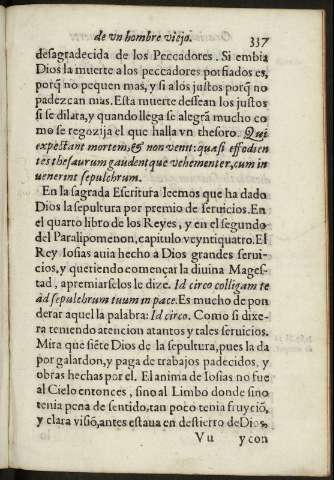 de vn hombre viejo.
337
desagradecida de los Peccadores. Si embia
Dios la muerte a los peccadores porfiados es,
porq̃ no pequen mas, y si a los justos porq̃ no
padezcan mas. Esta muerte dessean los justos
si se dilata, y quando llega se alegrã mucho co
mo se regozija el que halla vn thesoro. Qui
expectant mortem, & non venit: quasi effodien
tes thesaurum gaudentque vehementer, cum in
uenerint sepulchrum.
En la sagrada Escritura leemos que ha dado
Dios la sepultura por premio de seruicios. En
el quarto libro de los Reyes, y en el segundo
del Paralipomenon, capitulo veyntiquatro. El
Rey Iosias auia hecho à Dios grandes serui-
cios, y queriendo començar la diuina Mages-
tad, a premiarselos le dize. Id circo colligam te
ad sepulchrum tuum in pace. Es mucho de pon
derar aquel la palabra: Id circo. Como si dixe-
ra teniendo atencion a tantos y tales seruicios.
Mira que siẽte Dios de la sepultura, pues la da
por galardon, y paga de trabajos padecidos, y
obras hechas por el. El anima de Iosias no fue
al Cielo entonces, sino al Limbo donde sino
tenia pena de sentido, tan poco tenia fruyciõ,
y clara visiõ, antes estaua en destierro de Dios,
Vu
y con